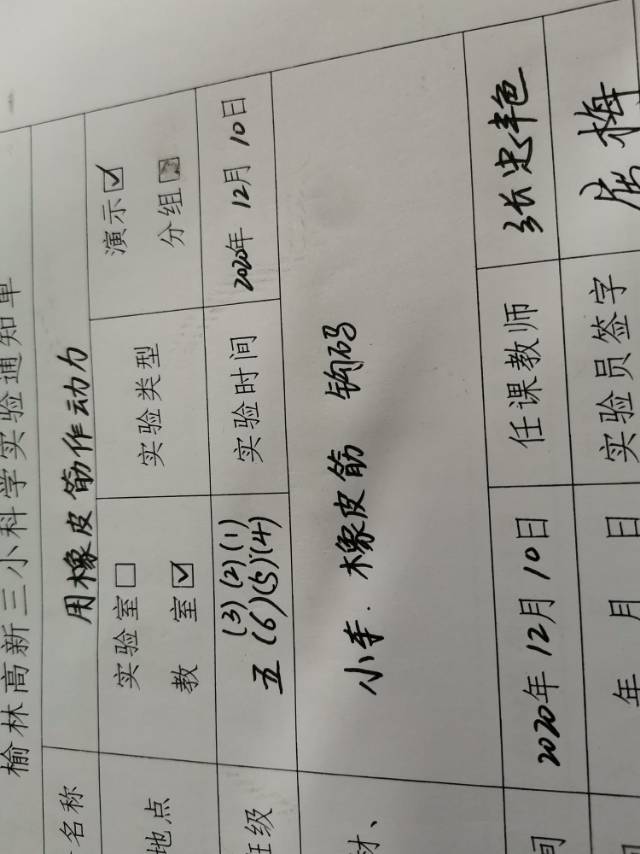 榆林高新三小科学实验通知单
名称 用橡皮筋作动力
地点 实验室□ 教 室☑ 实验类型 演示☑ 分组☑
班级 五 (3)(2)(1) (6)(5)(4) 实验时间 2020年 12月 10日
材、 小车. 橡皮筋 钩码
间 2020年 12月 10日 任课教师
间 年 月 日 实验员签字